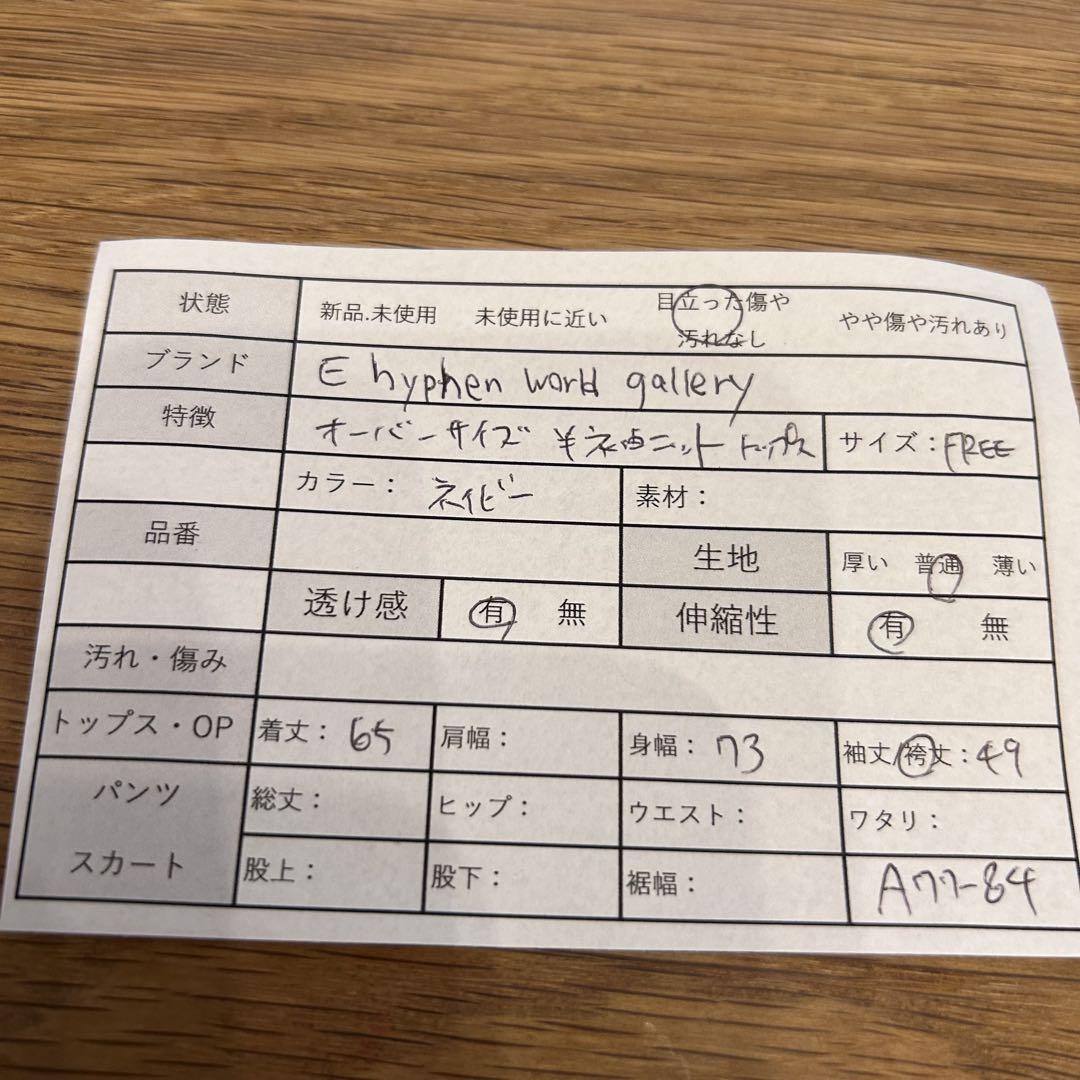 状態 新品.未使用 未使用に近い 目立った傷や汚れなし やや傷や汚れあり
ブランド E hyphen world gallery
特徴 オーバーサイズ 半袖ニット トップス サイズ：FREE
カラー： ネイビー 素材：
品番 生地 厚い 普通 薄い
透け感 有 無 伸縮性 有 無
汚れ・傷み
トップス・OP 着丈： 65 肩幅： 身幅： 73 袖丈/裄丈：49
パンツ 総丈： ヒップ： ウエスト： ワタリ：
スカート 股上： 股下： 裾幅： A77-84